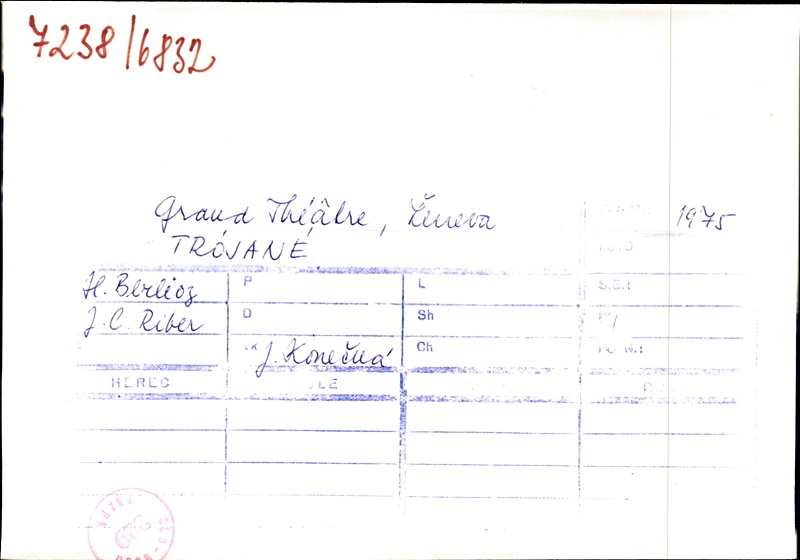 7238/6832
Grand Théâtre, Ženeva 1975
TRÓJANÉ
H. Berlioz P L S.G.:
J. C. Riber D Sh
J. Konečná Ch
HEREC